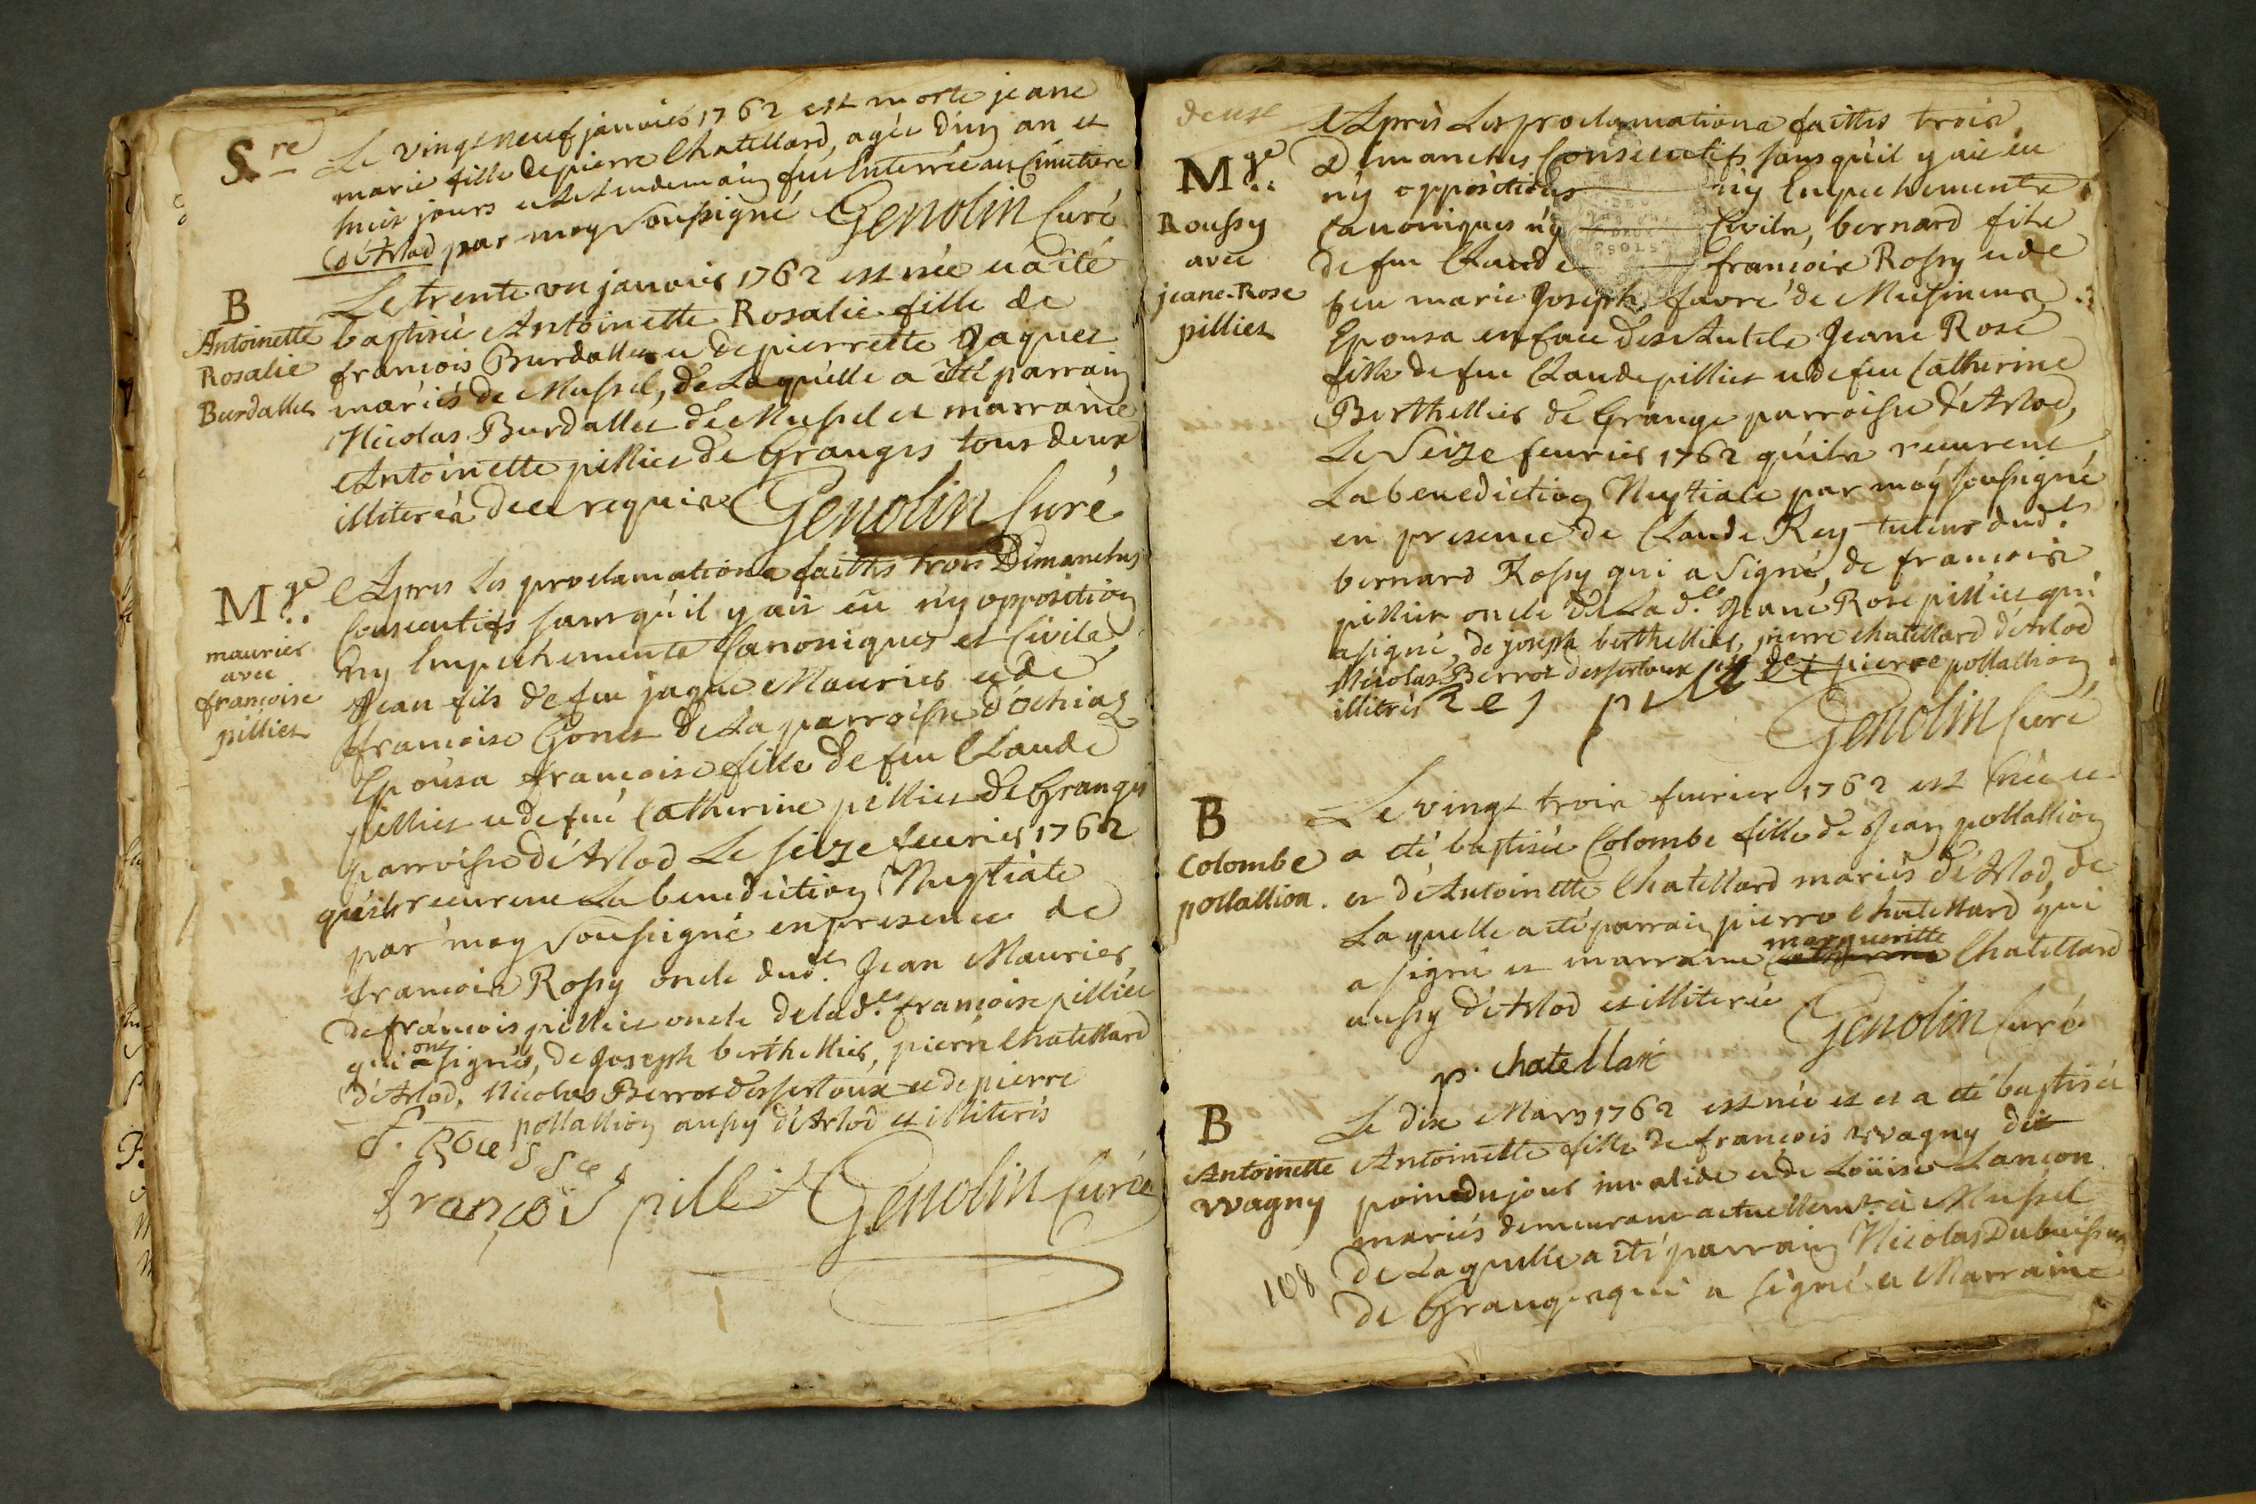 S.re
Le vingt neuf janvier 1762 est morte jeane
marie fille de pierre Chatellard, agée d'un an et
huit jours et le lendemain fut Enterrée au Cimetiere
d'Arlod par moy soussigné Genolin Curé
B
Antoinette
Rosalie
Burdallet
Le trente un janvier 1762 est née et a été
baptisée Antoinette Rosalie fille de
francois Burdallet et de pierrette Jaquet
mariés de Mussel, de Laquelle a été parrain
Nicolas Burdallet de Mussel et marraine
Antoinette pilliet de Granges tous deux
illiterés de ce requis Genolin Curé
M.ge
maurier
avec
françoise
pilliet
Apres les proclamations faittes trois Dimanches
Consecutifs sans qu'il y ait eu ny opposition
ny Empechements Canoniques et Civils
Jean fils de feu jaque Maurier et de
francoise Gonet de la parroisse d'ochiaz
Epousa francoise fille de feu Claude
pilliet et de feue Catherine pilliet de Granges
parroisse d'Arlod Le seize fevrier 1762
qu'ils recurent La benediction Nuptiale
par moy soussigné en presence de
francois Rossy oncle dud.t Jean Maurier
de francois pilliet oncle de lad.e francoise pilliet
qui ont signés, de Joseph berthellier, pierre Chatellard
d'Arlod, Nicolas Berrot dessertoux et de pierre
pollallion aussy d'Arlod et illiterés
françois pilliet Genolin Curé
deux
M.ge
Roussy
avec
jeane-Rose
pilliet
Apres Les proclamations faittes trois
Dimanches Consecutifs sans qu'il y ait eu
ny oppositions ny Empechements
Canoniques ny Civils, bernard fils
de feu Claude francois Rossy et de
feu marie Joseph favre de Musinens
Epousa en face des Autels Jeane Rose
fille de feu Claude pilliet et de feu Catherine
Berthellier de Grange parroisse d'Arlod,
Le seize fevrier 1762 qu'ils recurent
La benediction Nuptiale par moy soussigné
en presence de Claude Rey tuteur dud.t
bernard Rossy qui a signé, de francois
pilliet oncle de Lad.e Jeane Rose pilliet qui
a signé, de joseph berthellier, pierre chatellard d'Arlod
Nicolas Berrot dessertoux et de pierre pollallion
illiterés
Genolin Curé
B
Colombe
pollallion.
Le vingt trois fevrier 1762 est née et
a été baptisée Colombe fille de Jean pollallion
et d'Antoinette Chatellard mariés d'Arlod, de
Laquelle a été parrain pierre Chatellard qui
margueritte
a signé et marraine Catherine Chatellard
aussy d'Arlod et illiterée
Genolin Curé
p. chatellard
B
Antoinette
wagny
Le dix Mars 1762 est née et et a été baptisée
Antoinette fille de francois wagny dit
pointdujour invalide et de Loüise Lancon
mariés demeurant actuellem.t à Mussel
de Laquelle a été parrain Nicolas Dubuisson
de Granges qui a signé et Marraine
108